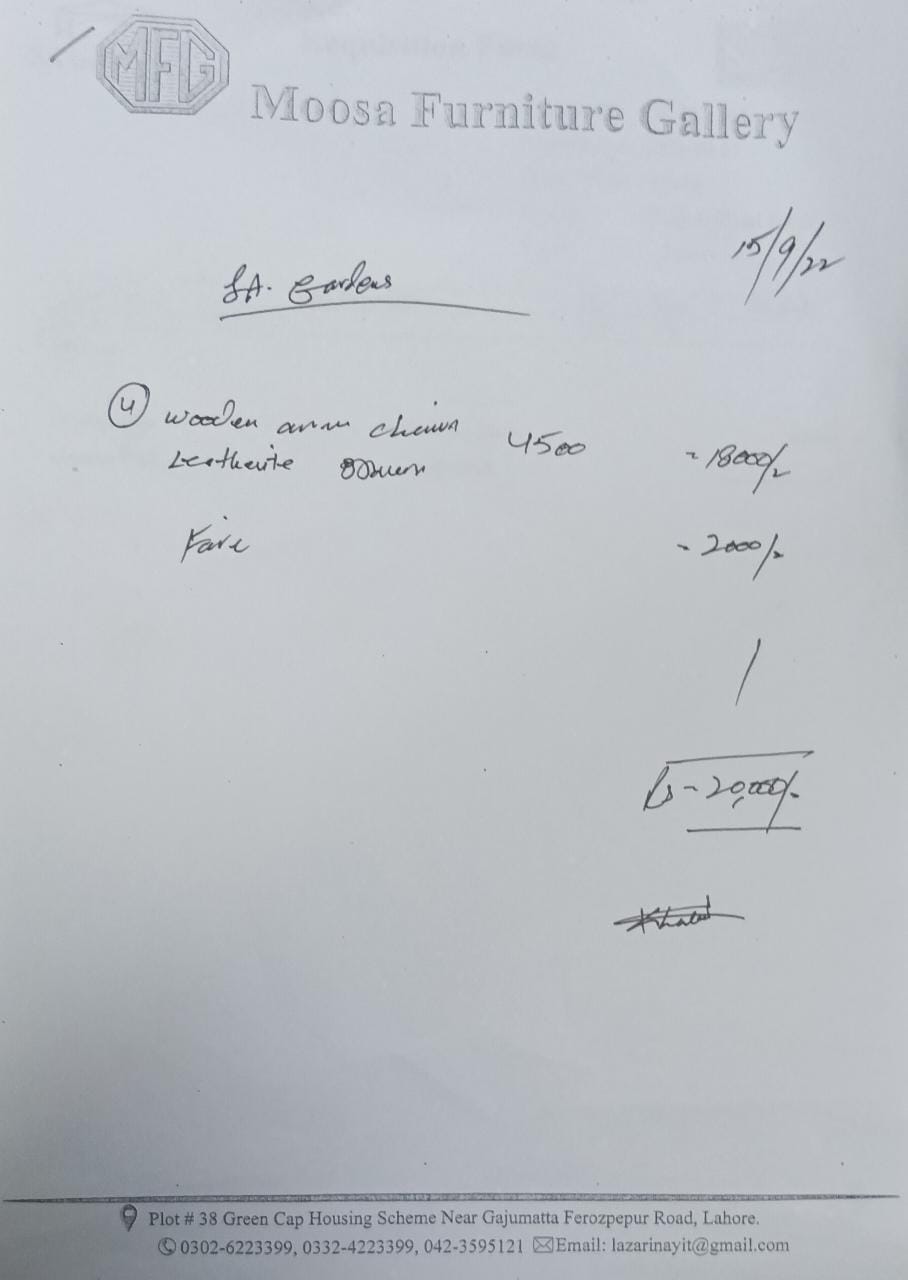 MFG
Moosa Furniture Gallery
15/9/22
SA. Gardens
4 wooden arm chairs 4500 = 18000/-
Leatherite
Fare = 2000/-
Rs - 20,000/-
Khalid
Plot # 38 Green Cap Housing Scheme Near Gajumatta Ferozpepur Road, Lahore.
0302-6223399, 0332-4223399, 042-3595121 Email: lazarinayit@gmail.com